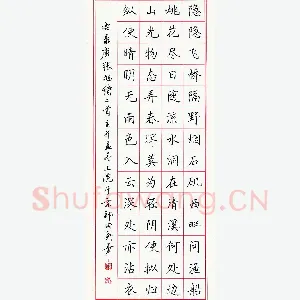 隐隐飞桥隔野烟石矶西畔问渔船
桃花尽日随流水洞在清溪何处边
山光物态弄春晖莫为轻阴便拟归
纵使晴明无雨色入云深处亦沾衣
唐张旭诗二首